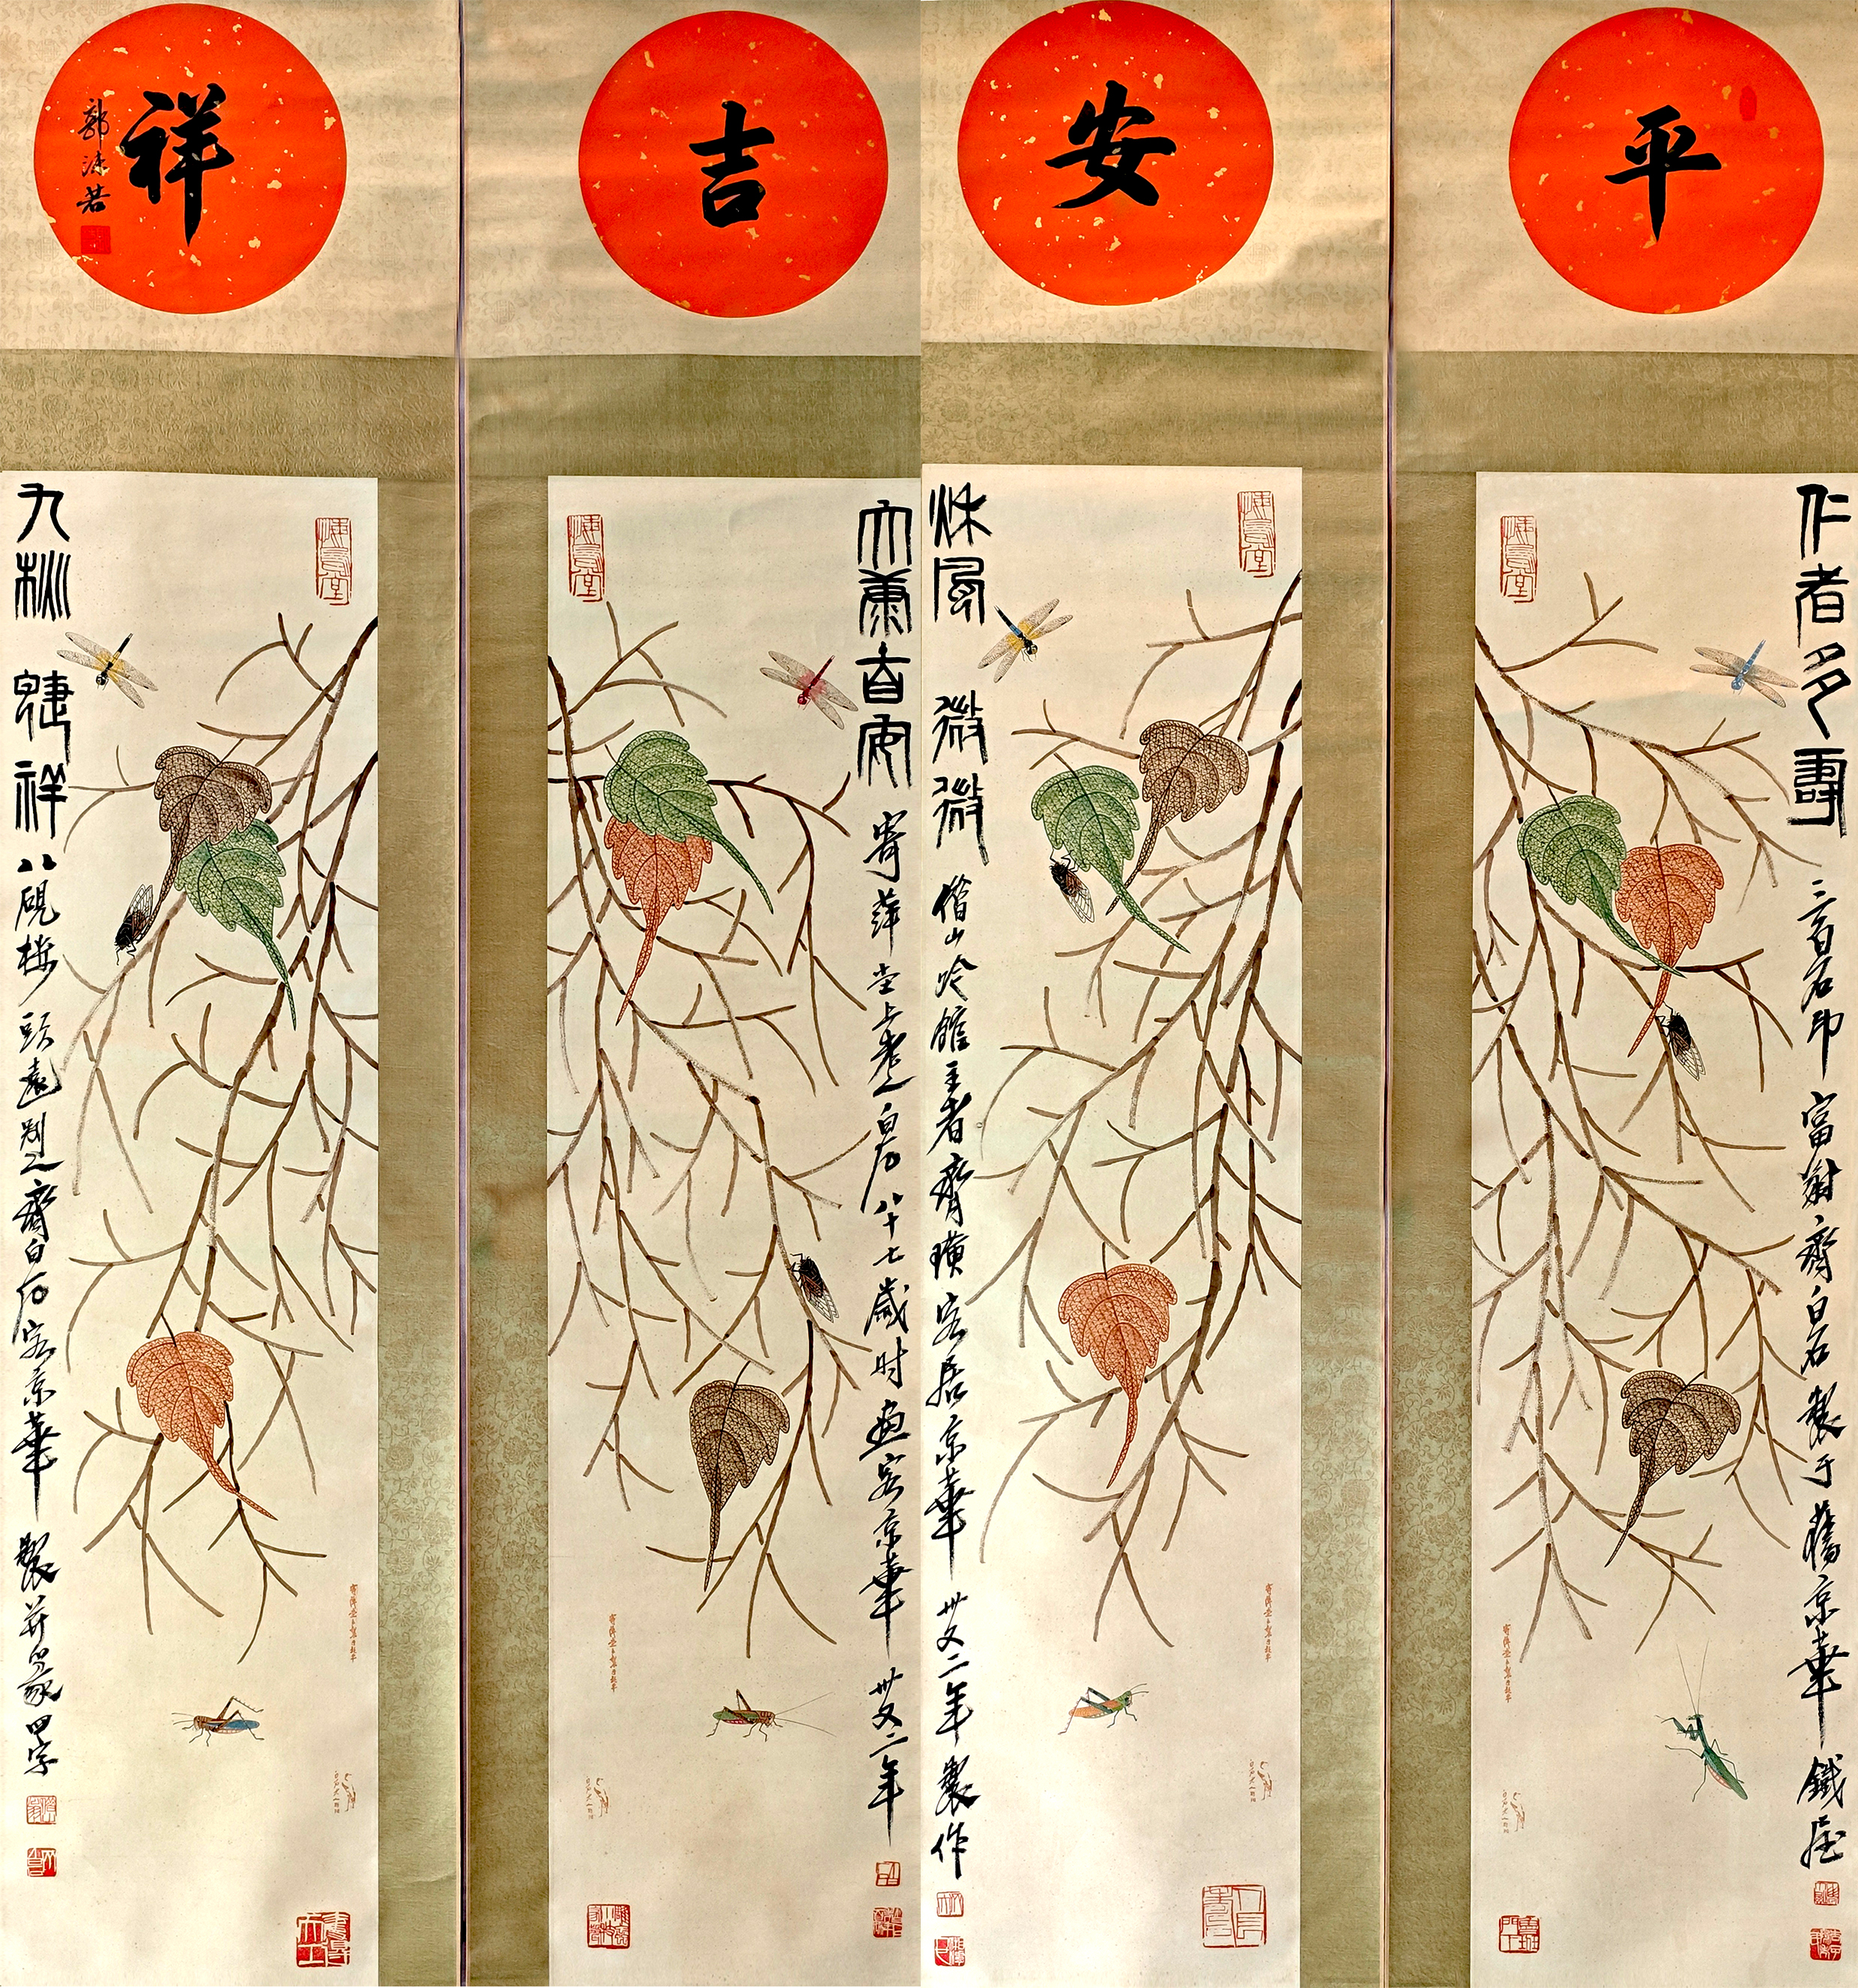 平
安
吉
祥
郭沫若
仁者多壽
三百石印富翁齊白石製于舊京華鐵屋
秋風微微
借山吟館主者齊璜客居京華卅又二年製作
寄萍堂上老人白石八十七歲时畫客京華卅又二年
九秋祥
八硯樓頭遠別人齊白石客京華製并篆四字